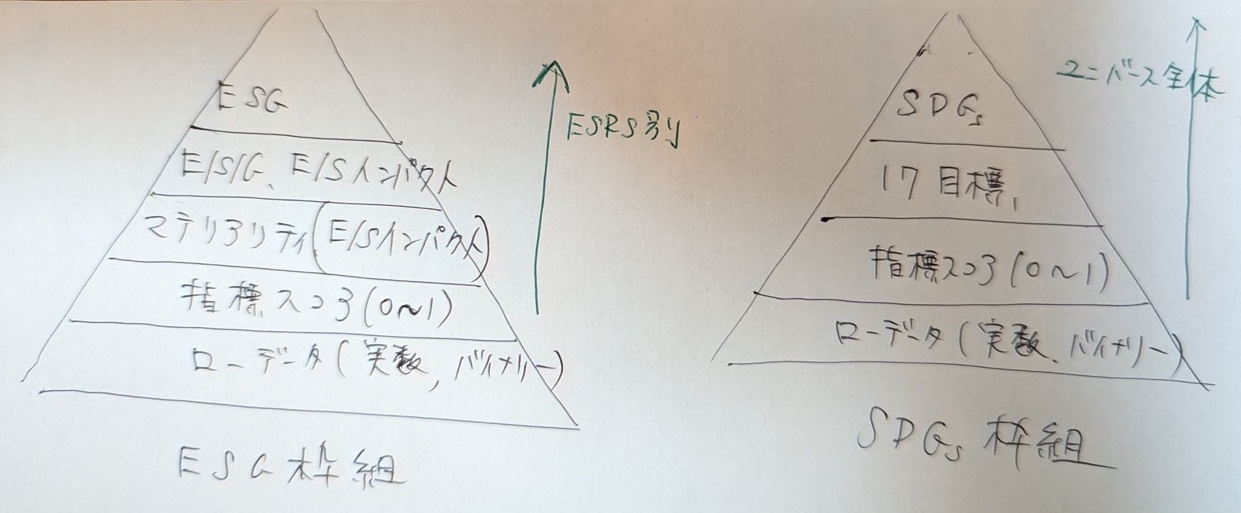 ESG
E/S/G、E/Sインパクト
マテリアリティ(E/Sインパクト)
指標スコア(0~1)
ローデータ(実数,バイナリー)
ESG枠組
ESRS別
SDGs
17目標,
指標スコア(0~1)
ローデータ(実数、バイナリー)
SDGs枠組
ユニバース全体